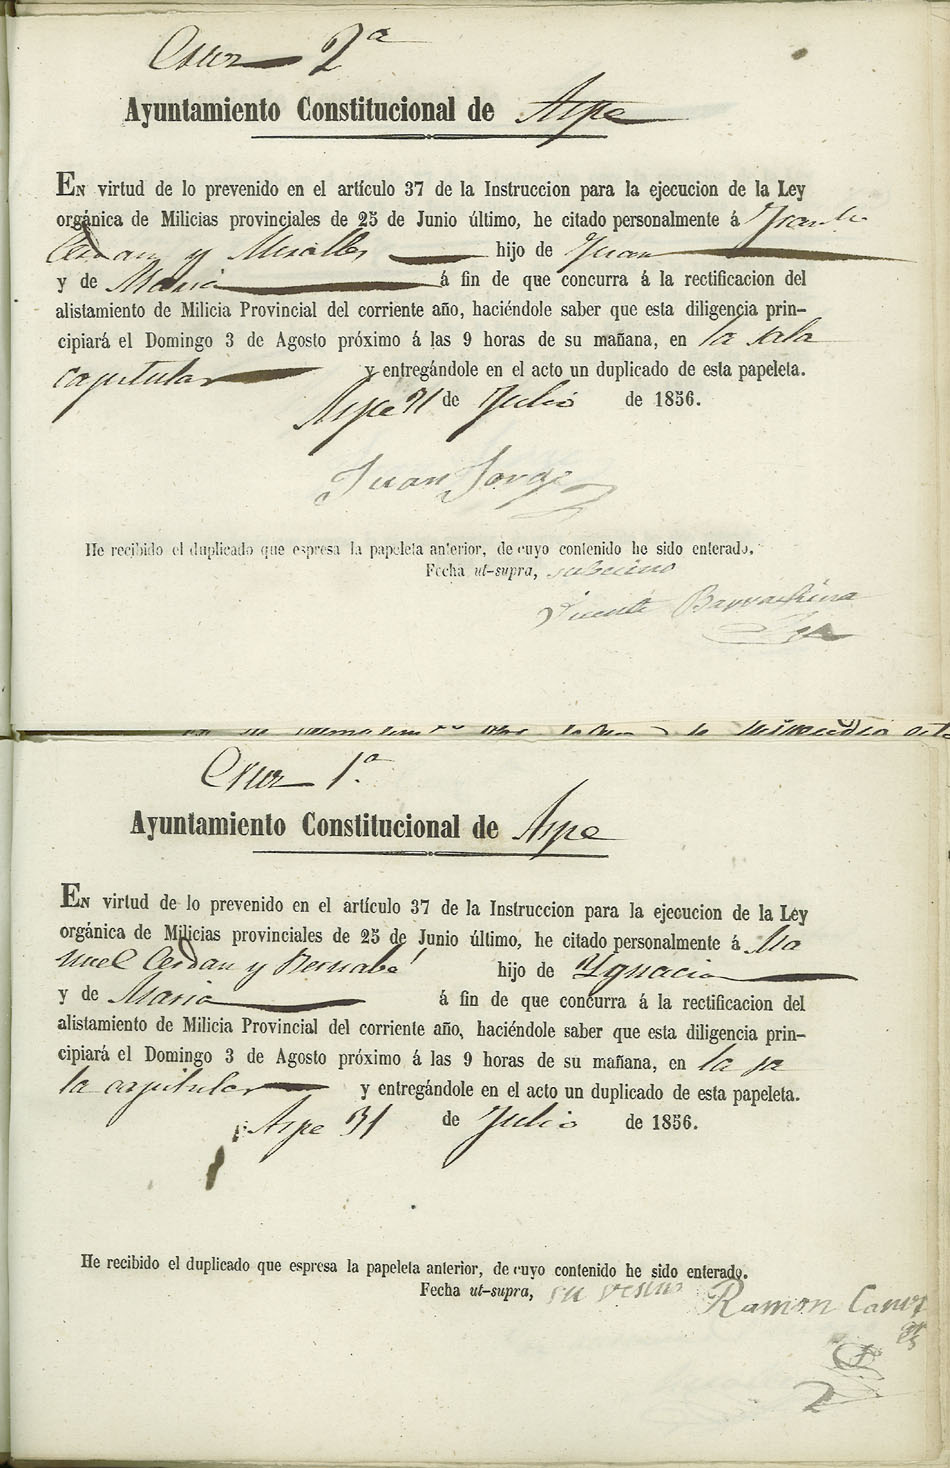 Cruz 2ª
Ayuntamiento Constitucional de Aspe
EN virtud de lo prevenido en el artículo 37 de la Instruccion para la ejecucion de la Ley
orgánica de Milicias provinciales de 25 de Junio último, he citado personalmente á
Cerdan y Miralles hijo de Juan
y de Maria á fin de que concurra á la rectificacion del
alistamiento de Milicia Provincial del corriente año, haciéndole saber que esta diligencia prin-
cipiará el Domingo 3 de Agosto próximo á las 9 horas de su mañana, en la sala
capitular y entregándole en el acto un duplicado de esta papeleta.
Aspe 31 de Julio de 1856.
Juan Jorge
He recibido el duplicado que espresa la papeleta anterior, de cuyo contenido he sido enterado.
Fecha ut-supra, su becino
Vicente Barrachina
Cruz 1ª
Ayuntamiento Constitucional de Aspe
EN virtud de lo prevenido en el artículo 37 de la Instruccion para la ejecucion de la Ley
orgánica de Milicias provinciales de 25 de Junio último, he citado personalmente á Ma
nuel Cerdan y Bernabé hijo de Ygnacio
y de Maria á fin de que concurra á la rectificacion del
alistamiento de Milicia Provincial del corriente año, haciéndole saber que esta diligencia prin-
cipiará el Domingo 3 de Agosto próximo á las 9 horas de su mañana, en la sa
la capitular y entregándole en el acto un duplicado de esta papeleta.
Aspe 31 de Julio de 1856.
He recibido el duplicado que espresa la papeleta anterior, de cuyo contenido he sido enterado.
Fecha ut-supra, su vesino
Ramon